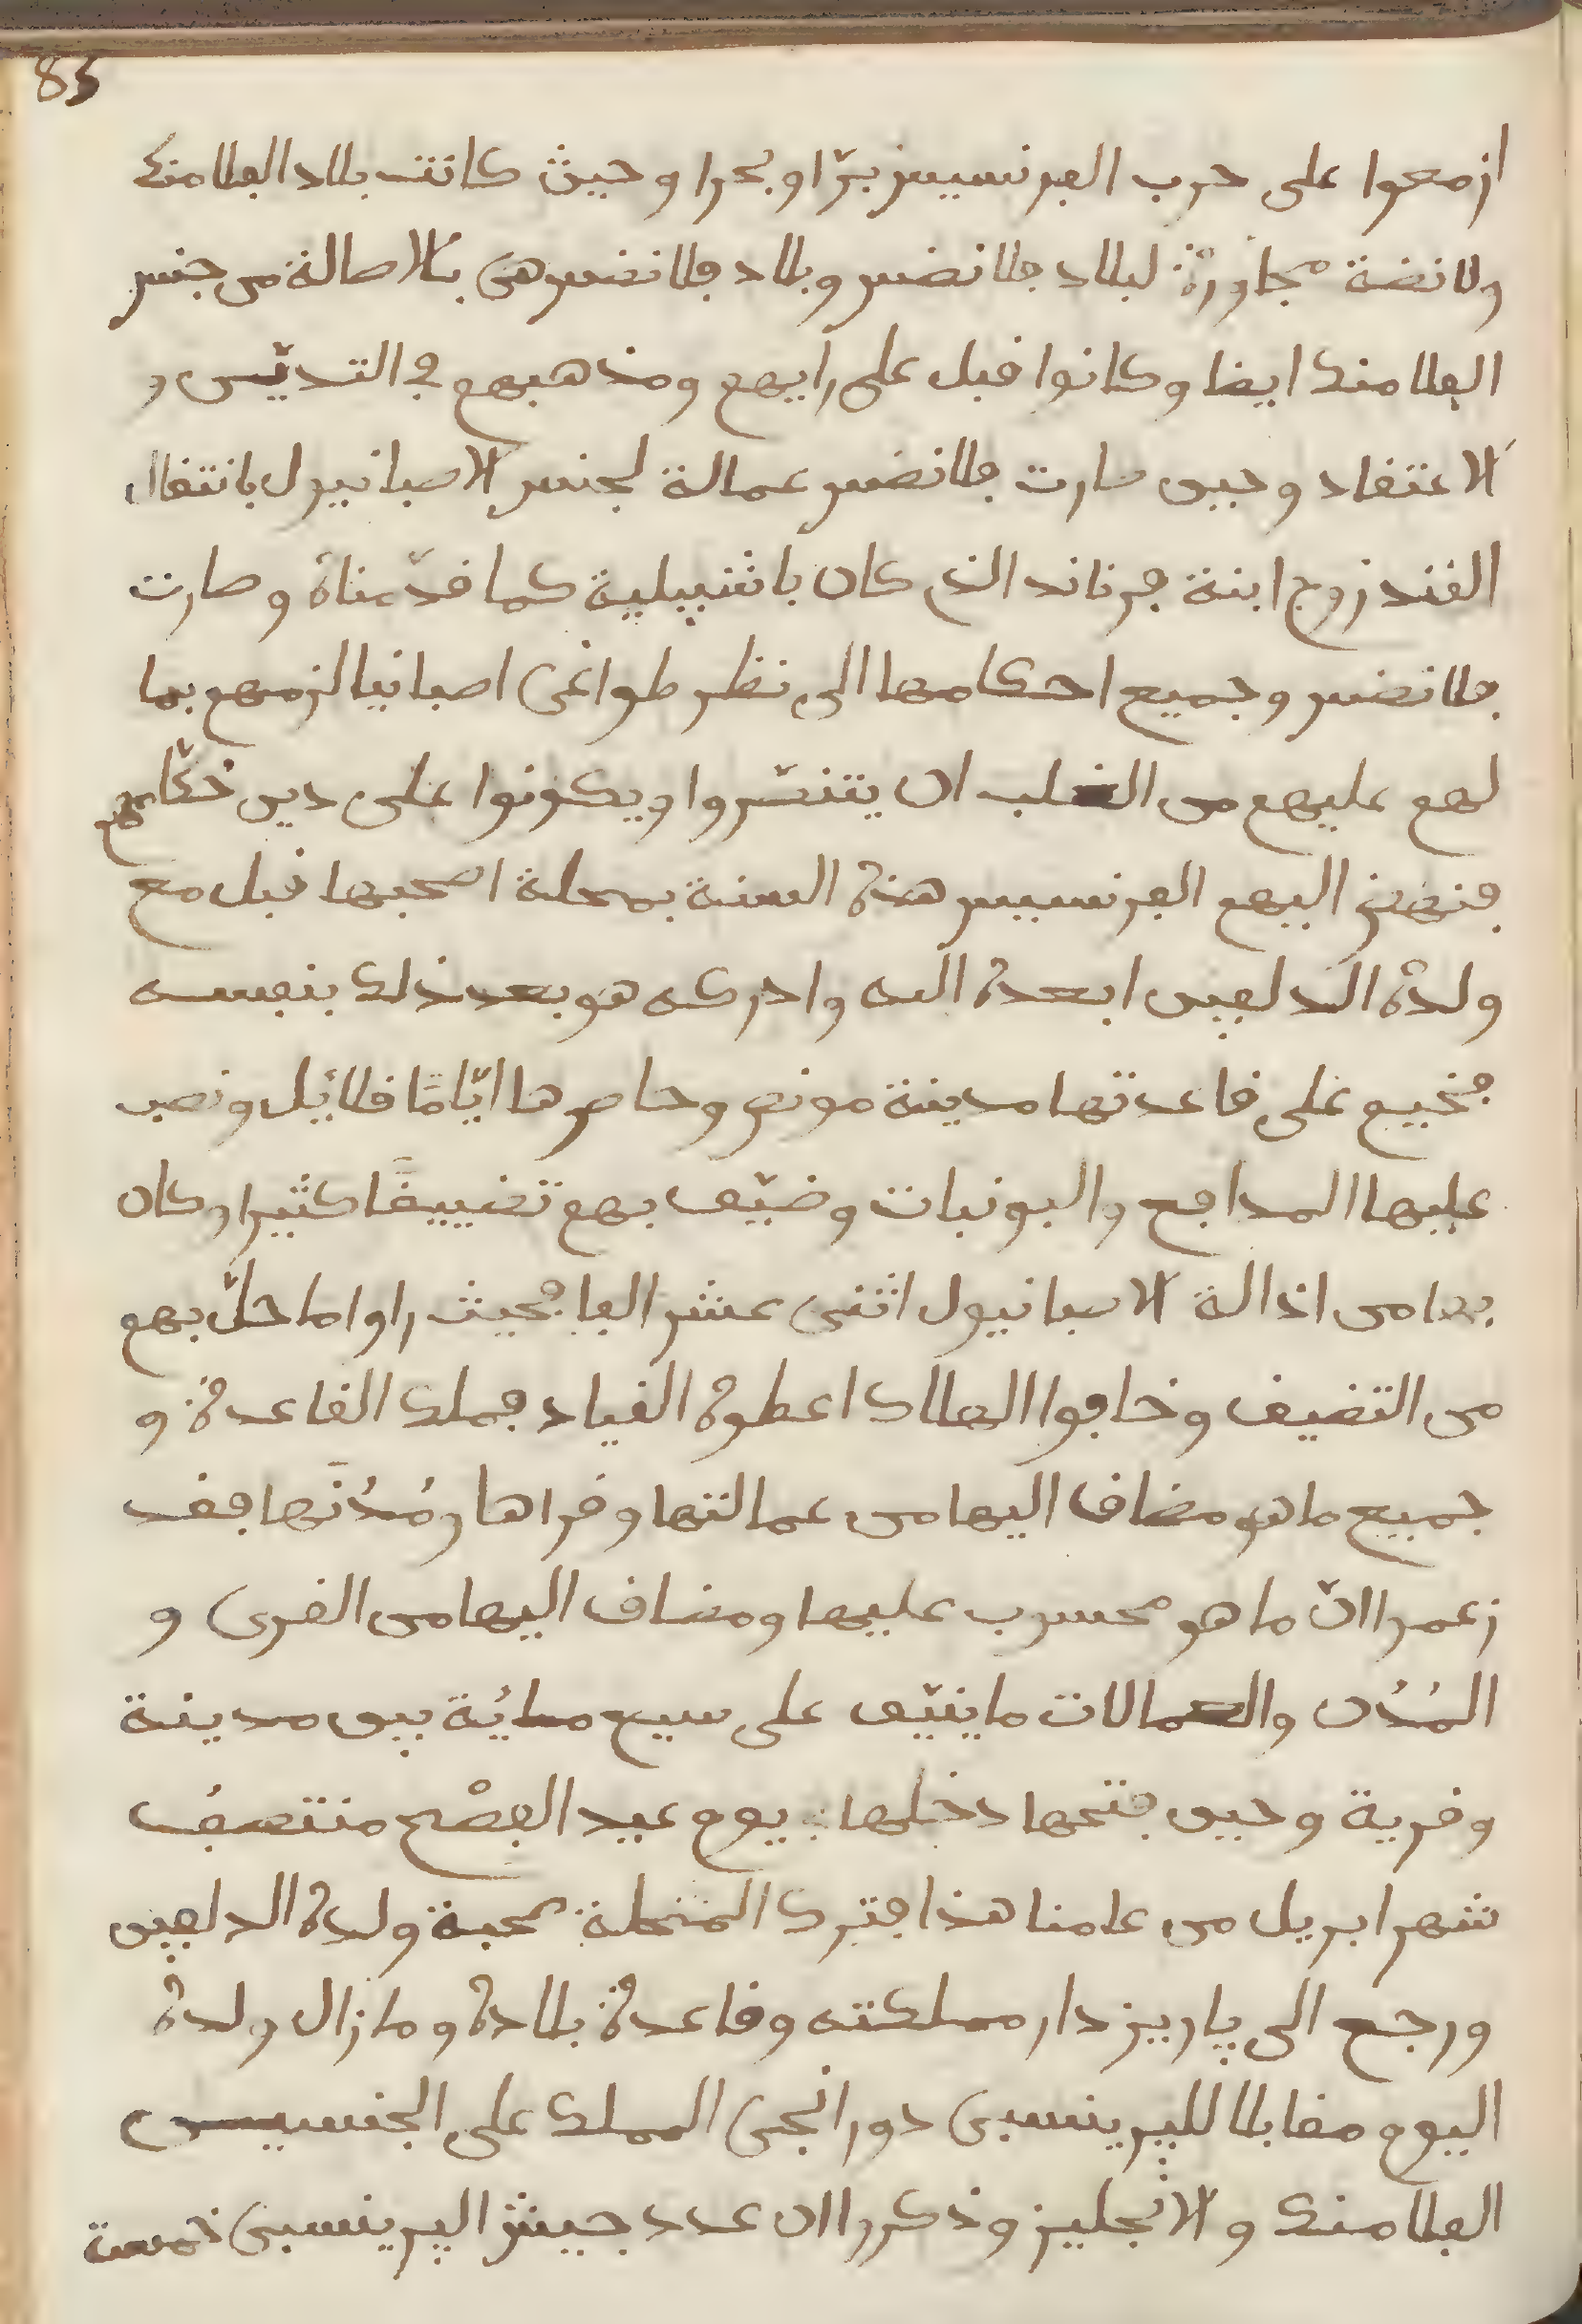 85
ازمعوا على حرب الفرنسيز برّا وبحرا وحيث كانت بلاد الفلامنك
ولانضة مجاورة لبلاد فلانضس وبلاد فلانضس هى بالاصالة من جنس
الفلامنك ايضا وكانوا قبل على رايهم ومذهبهم في التديّن و
الاعتقاد وحين صارت فلانضس عمالة لجنس الاصبانيول بانتقال
القند زوج ابنة فرناند الذي كان باشبيلية كما قدّمناه وصارت
فلانضس وجميع احكامها الى نظر طواغى اصبانيا الزمهم بما
لهم عليهم من الغلب ان يتنصّروا ويكونوا على دين حكّامهم
فنهض اليهم الفرنسيس هذه السنة بمحلة اصحبها قبل مع
ولده الدلفين ابعده اليه وادركه هو بعد ذلك بنفسه
فخيم على قاعدتها مدينة مونص وحاصرها ايّامًا قلائل ونصب
عليها المدافع والبونبات وضيّق بهم تضييقًا كثيرا وكان
بها من اذالة الاصبانيول اثنى عشر الفا فحيث راوا ما حلّ بهم
من التضيق وخافوا الهلاك اعطوه القياد فملك القاعدة و
جميع ما هو مضاف اليها من عمالتها وقراها ومُدُنها فقد
زعموا انّ ما هو محسوب عليها ومضاف اليها من القرى و
المُدُن والعمالات ما ينيّف على سبع مائة بين مدينة
وقرية وحين فتحها دخلها يوم عيد الفصْح منتصف
شهر ابريل من عامنا هذا فترك المحلة صحبة ولده الدلفين
ورجع الى پاريز دار مملكته وقاعدة بلاده وما زال ولده
اليوم مقابلا للپرينسبى دورانجى المملك على الجنسين
الفلامنك والانجليز وذكروا ان عدد جيش الپرينسبى خمسة